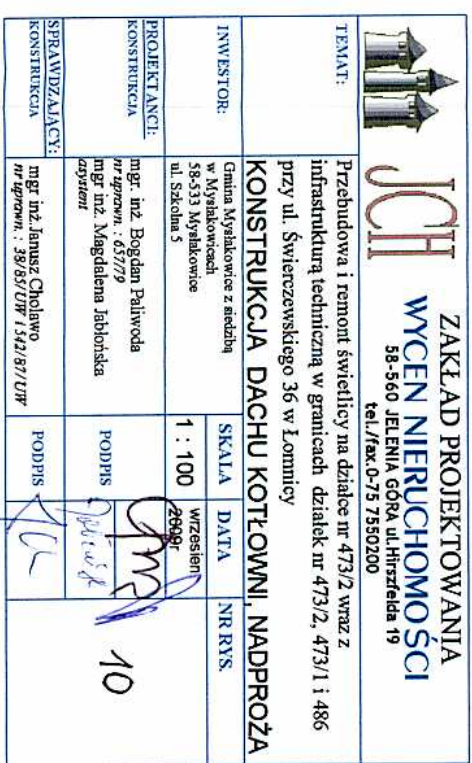 JCH
ZAKŁAD PROJEKTOWANIA
WYCEN NIERUCHOMOŚCI
58-560 JELENIA GÓRA ul.Hirszfelda 19
tel./fax.0-75 7550200
TEMAT:
Przebudowa i remont świetlicy na działce nr 473/2 wraz z
infrastrukturą techniczną w granicach działek nr 473/2, 473/1 i 486
przy ul. Świerczewskiego 36 w Łomnicy
KONSTRUKCJA DACHU KOTŁOWNI, NADPROŻA
INWESTOR:
Gmina Mysłakowice z siedzibą
w Mysłakowicach
58-533 Mysłakowice
ul. Szkolna 5
SKALA
DATA
NR RYS.
1 : 100
wrzesień
2009r
PROJEKTANCI:
KONSTRUKCJA
mgr. inż. Bogdan Paliwoda
nr uprawn. : 657/79
mgr inż. Magdalena Jabłońska
asystent
PODPIS
10
SPRAWDZAJĄCY:
KONSTRUKCJA
mgr inż.Janusz Cholawo
nr uprawn. : 39/85/UW i 542/87/UW
PODPIS